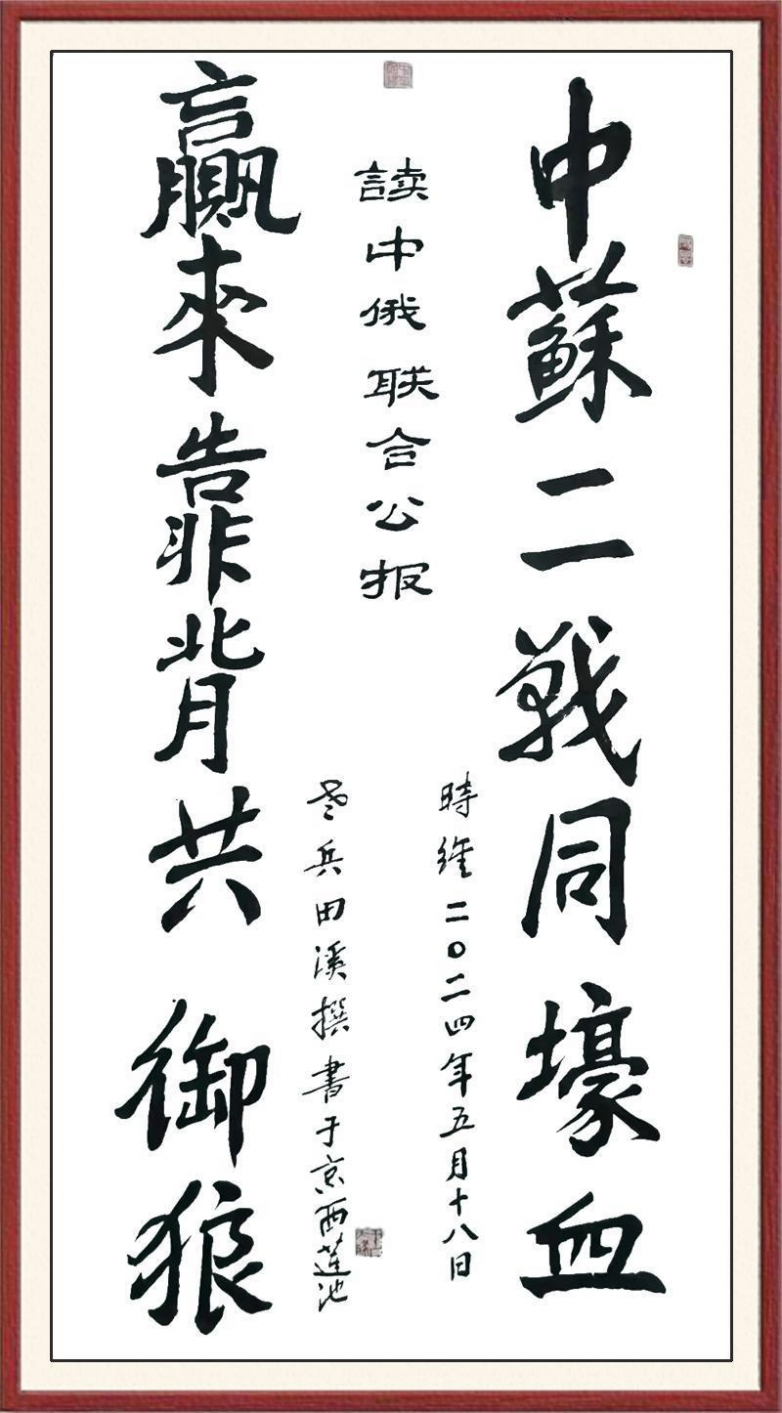 中蘇二戰同壕血
時維二〇二四年五月十八日
读中俄联合公报
老兵田溪撰書于京西莲池
贏來靠背共御狼